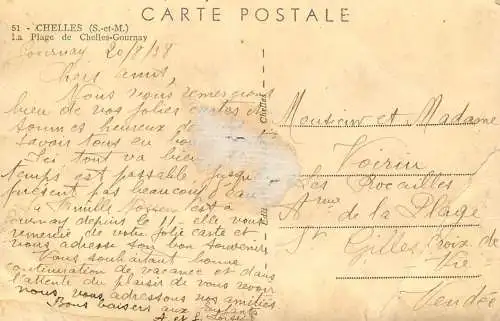 CARTE POSTALE
51 - CHELLES (S.-et-M.)
La Plage de Chelles-Gournay
Gournay 20/8/38
Chers amis,
Nous vous remercions
bien de vos jolies cartes et
sommes heureux de
savoir tous en bonne
Ici tout va bien
temps est passable jusque
présent pas beaucoup d'eau
La famille est à
Gournay depuis le 11 - elle vous
remercie de votre jolie carte et
vous adresse son bon souvenir
Vous souhaitant bonne
continuation de vacance et dans
l'attente du plaisir de vous revoir
nous vous adressons nos amitiés
Bons baisers aux enfants
A et L
Chelles
Monsieur et Madame
Voirin
Les Rocailles
Anue de la Plage
St Gilles Croix de
- Vie -
Vendée